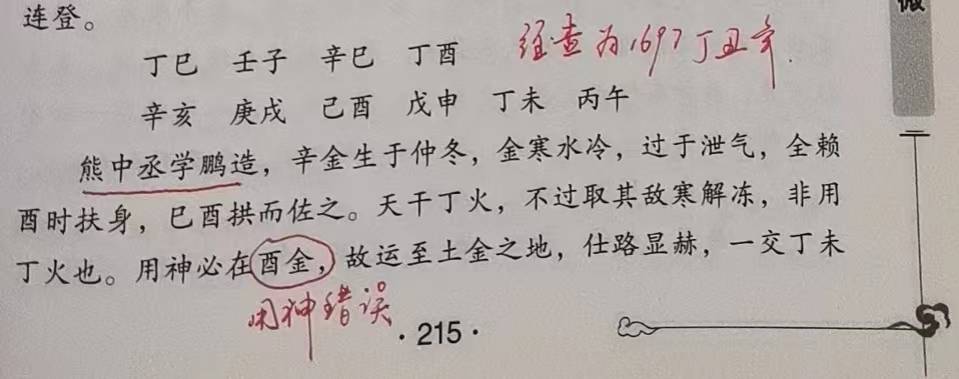 微
连登。
丁巳 壬子 辛巳 丁酉 经查为1697丁丑年.
辛亥 庚戌 己酉 戊申 丁未 丙午
熊中丞学鹏造，辛金生于仲冬，金寒水冷，过于泄气，全赖
酉时扶身，巳酉拱而佐之。天干丁火，不过取其敌寒解冻，非用
丁火也。用神必在酉金，故运至土金之地，仕路显赫，一交丁未
用神错误
·215·